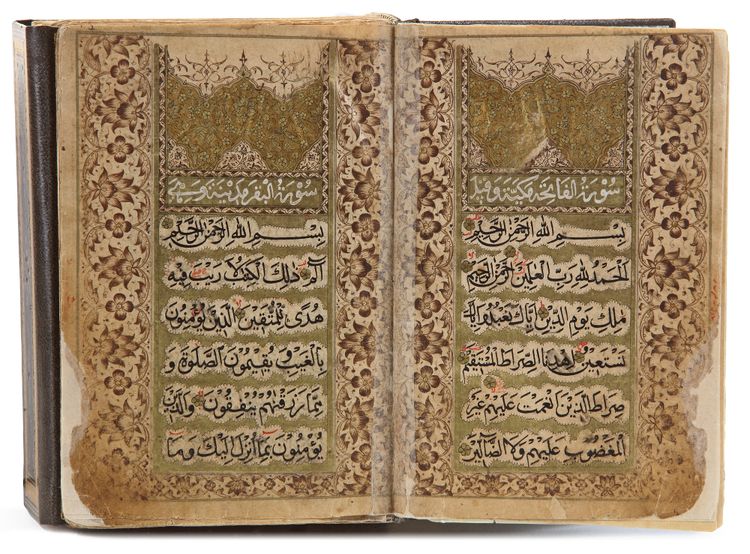 سورة الفاتحة مكية وقيل
بسم الله الرحمن الرحيم
الحمد لله رب العلمين الرحمن الرحيم
ملك يوم الدين اياك نعبد واياك
نستعين اهدنا الصراط المستقيم
صراط الذين انعمت عليهم غير
المغضوب عليهم ولا الضالين
سورة البقرة مدنية
بسم الله الرحمن الرحيم
الم ذلك الكتب لا ريب فيه
هدى للمتقين الذين يؤمنون
بالغيب ويقيمون الصلوة و
مما رزقنهم ينفقون والذين
يؤمنون بما انزل اليك وما